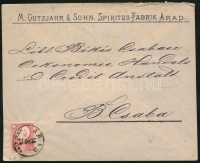 M. GUTZJAHR & SOHN. SPIRITUS-FABRIK ARAD.
Löbl Békés Csabaer
Oekonomie Handels
& Credit Anstalt
B. Csaba